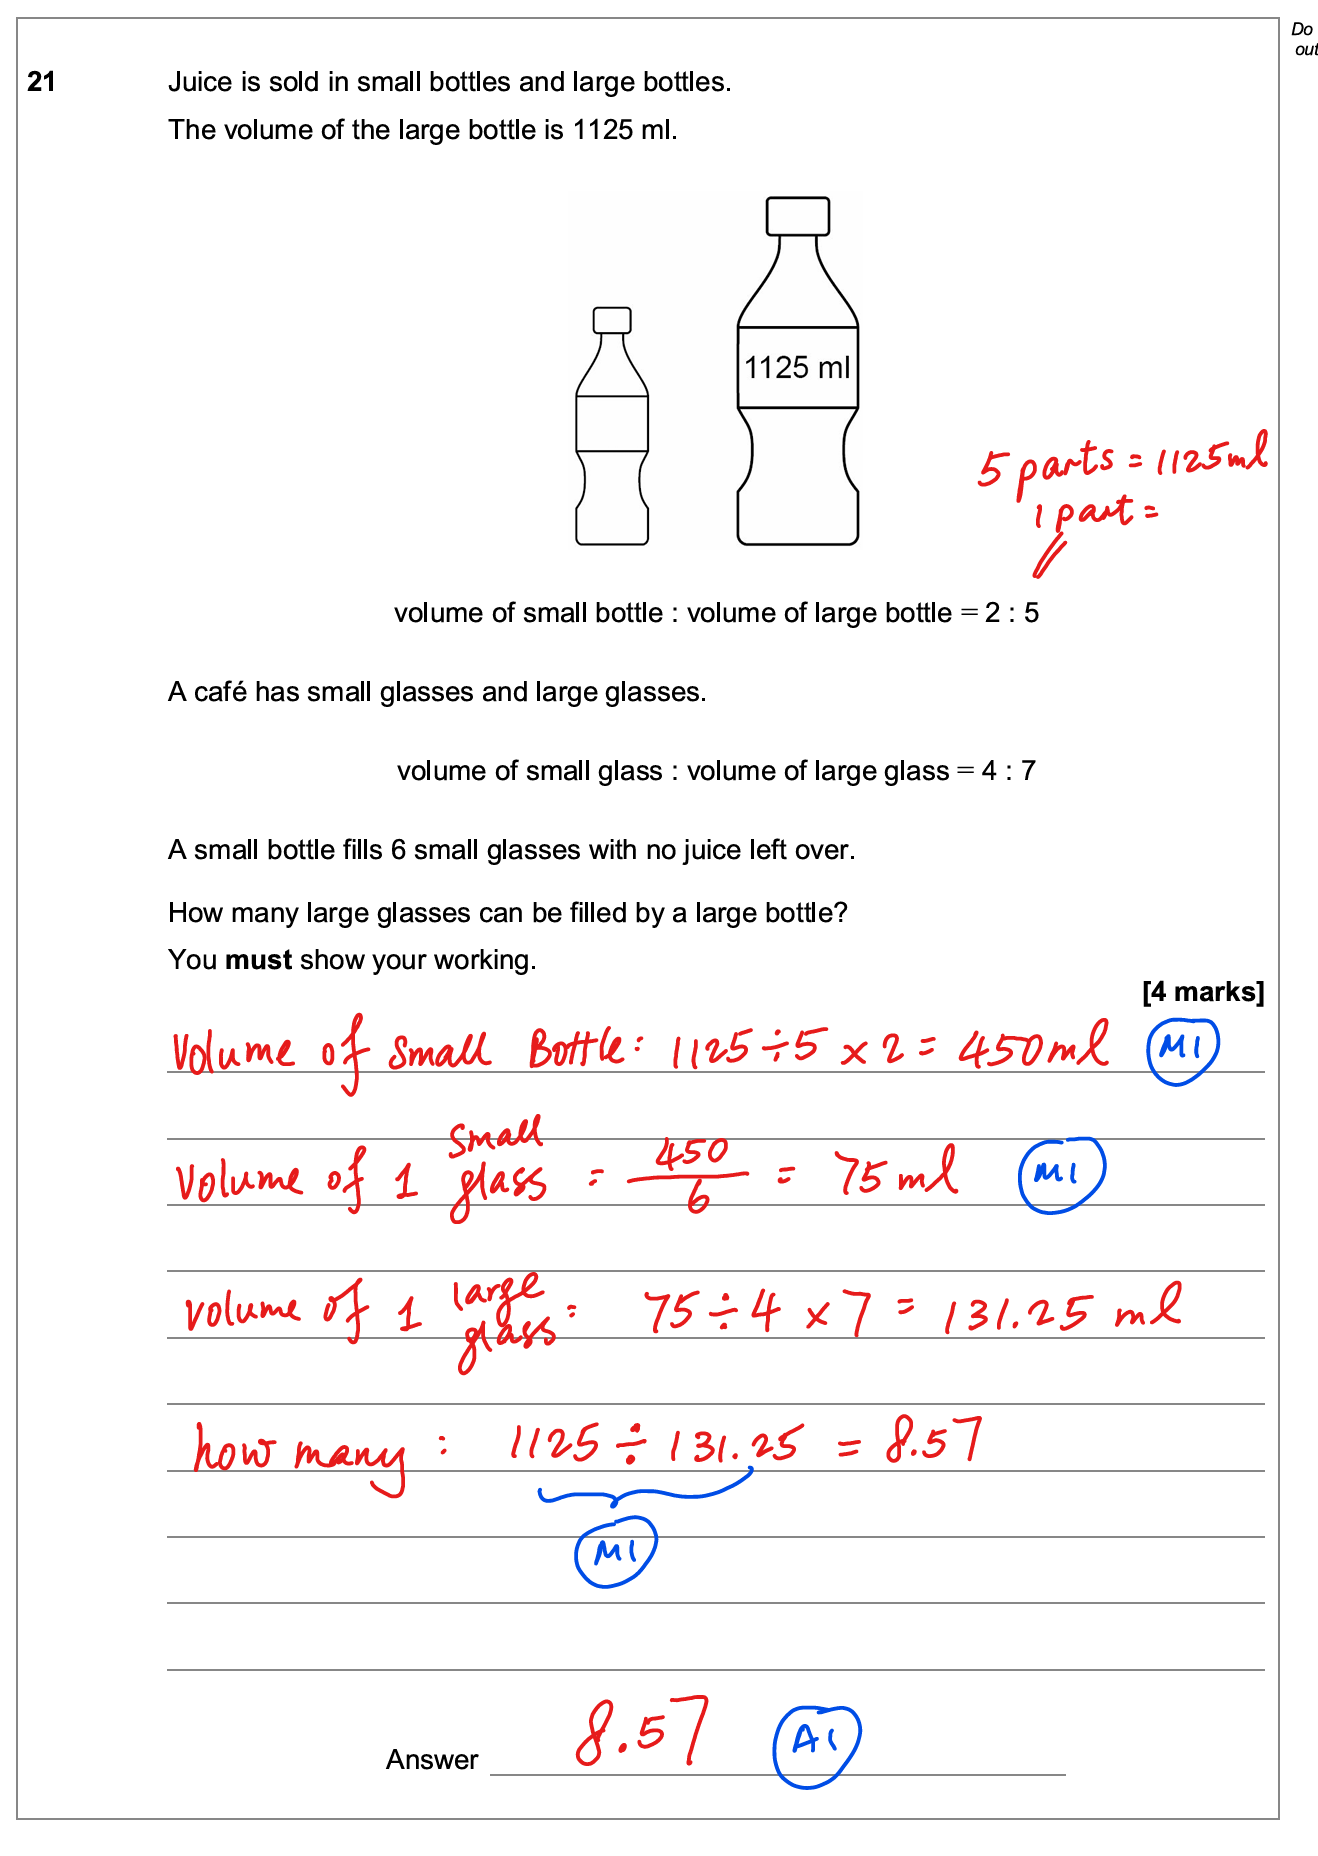 Do
out
21 Juice is sold in small bottles and large bottles.
The volume of the large bottle is 1125 ml.
1125 ml
5 parts = 1125ml
1 part =
volume of small bottle : volume of large bottle = 2 : 5
A café has small glasses and large glasses.
volume of small glass : volume of large glass = 4 : 7
A small bottle fills 6 small glasses with no juice left over.
How many large glasses can be filled by a large bottle?
You must show your working.
[4 marks]
Volume of small Bottle: 1125 ÷ 5 × 2 = 450ml M1
Volume of 1 small glass = 450/6 = 75 ml M1
volume of 1 large glass = 75 ÷ 4 × 7 = 131.25 ml
how many : 1125 ÷ 131.25 = 8.57
M1
Answer 8.57 A1